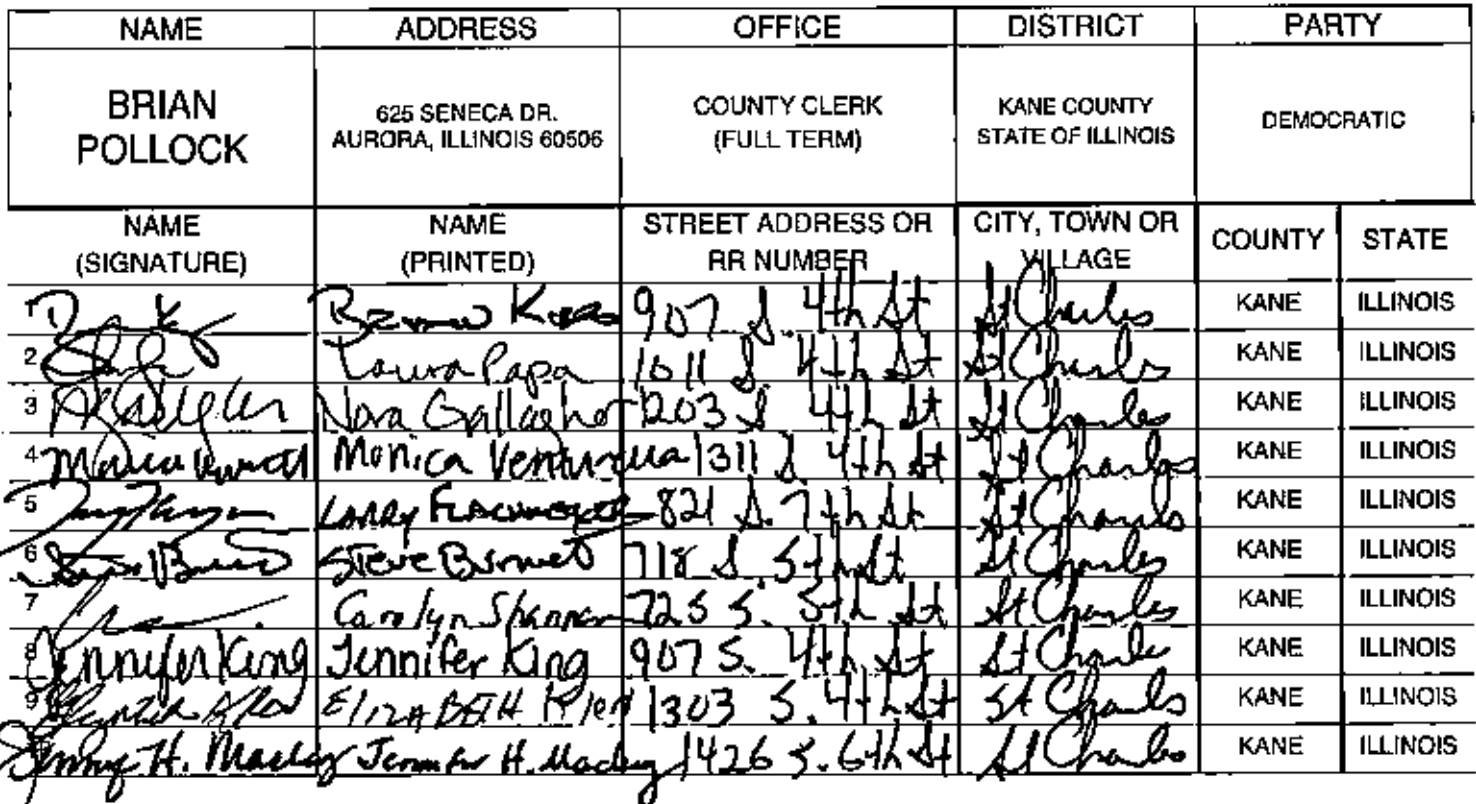 NAME ADDRESS OFFICE DISTRICT PARTY
BRIAN POLLOCK 625 SENECA DR. AURORA, ILLINOIS 60506 COUNTY CLERK (FULL TERM) KANE COUNTY STATE OF ILLINOIS DEMOCRATIC
NAME (SIGNATURE) NAME (PRINTED) STREET ADDRESS OR RR NUMBER CITY, TOWN OR VILLAGE COUNTY STATE
1 907 S. 4th St St Charles KANE ILLINOIS
2 Laura Papa 1011 S 4th St St Charles KANE ILLINOIS
3 Nora Gallagher 1203 S 4th St St Charles KANE ILLINOIS
4 Monica Monica 1311 S 4th St St Charles KANE ILLINOIS
5 Larry 821 S. 7th St St Charles KANE ILLINOIS
6 Steve 718 S. 5th St St Charles KANE ILLINOIS
7 Carolyn Shannon 725 S. 5th St St Charles KANE ILLINOIS
8 Jennifer King Jennifer King 907 S. 4th St St Charles KANE ILLINOIS
9 ELIZABETH 1303 S. 4th St St Charles KANE ILLINOIS
Jenny H. Mackey Jennifer H. Mackey 1426 S. 6th St St Charles KANE ILLINOIS